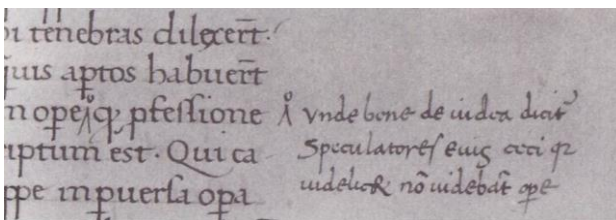 bi tenebras dilexert̄·
quis aꝑtos habuert̄
n ope qꝫ ꝓfessione
iptum est · Qui ca
ꝓpe in puersa oꝑa
vnde bene de iudea dicit᷑
Speculatores eiuꝫ ceci qꝛ
uidelicꝫ nō uidebāt oꝑe